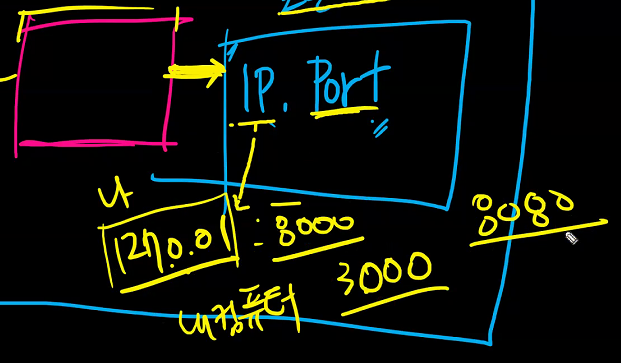 IP. Port
나
127.0.01 : 8000
8080
3000
내컴퓨터